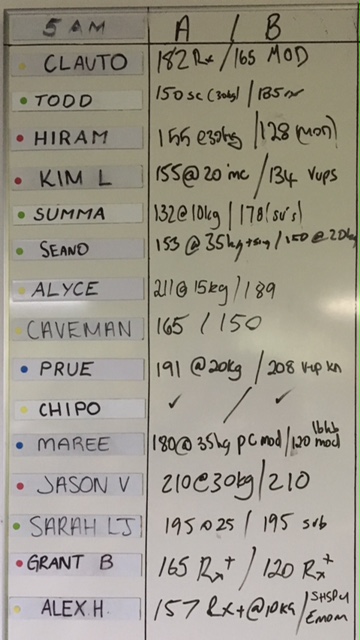 5 AM A / B
CLAUTO 182 Rx / 165 MOD
TODD 150 sc (30kg) / 135
HIRAM 155 @30kg / 128 (mod)
KIM L 155@20 mc / 134 Vups
SUMMA 132@10kg / 178 (su's)
SEANO 153 @ 35kg / 150 @ 20kg
ALYCE 211@ 15kg / 189
CAVEMAN 165 / 150
PRUE 191 @20kg / 208 Vup kn
CHIPO ✓ / ✓
MAREE 180@35kg pc mod / 120 mod
JASON V 210@30kg / 210
SARAH LJ 195 @25 / 195 sub
GRANT B 165 Rx+ / 120 Rx+
ALEX H. 157 Rx+@10KG / SHSPU Emom